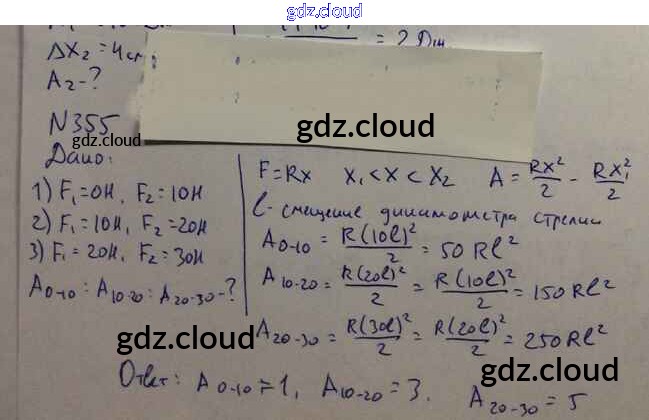 gdz.cloud
ΔX₂ = 4см
= 2 Дж
A₂ - ?
N355
gdz.cloud
gdz.cloud
Дано:
1) F₁ = 0H, F₂ = 10H
2) F₁ = 10H, F₂ = 20H
3) F₁ = 20H, F₂ = 30H
A₀₋₁₀ : A₁₀₋₂₀ : A₂₀₋₃₀ - ?
F = Rx X₁ < X < X₂ A = Rx²/2 - Rx₁²/2
l - смещение динамометра стрелки
A₀₋₁₀ = R(10l)²/2 = 50 Rl²
A₁₀₋₂₀ = R(20l)²/2 = R(10l)²/2 = 150 Rl²
A₂₀₋₃₀ = R(30l)²/2 = R(20l)²/2 = 250 Rl²
gdz.cloud
gdz.cloud
Ответ: A₀₋₁₀ = 1, A₁₀₋₂₀ = 3. A₂₀₋₃₀ = 5